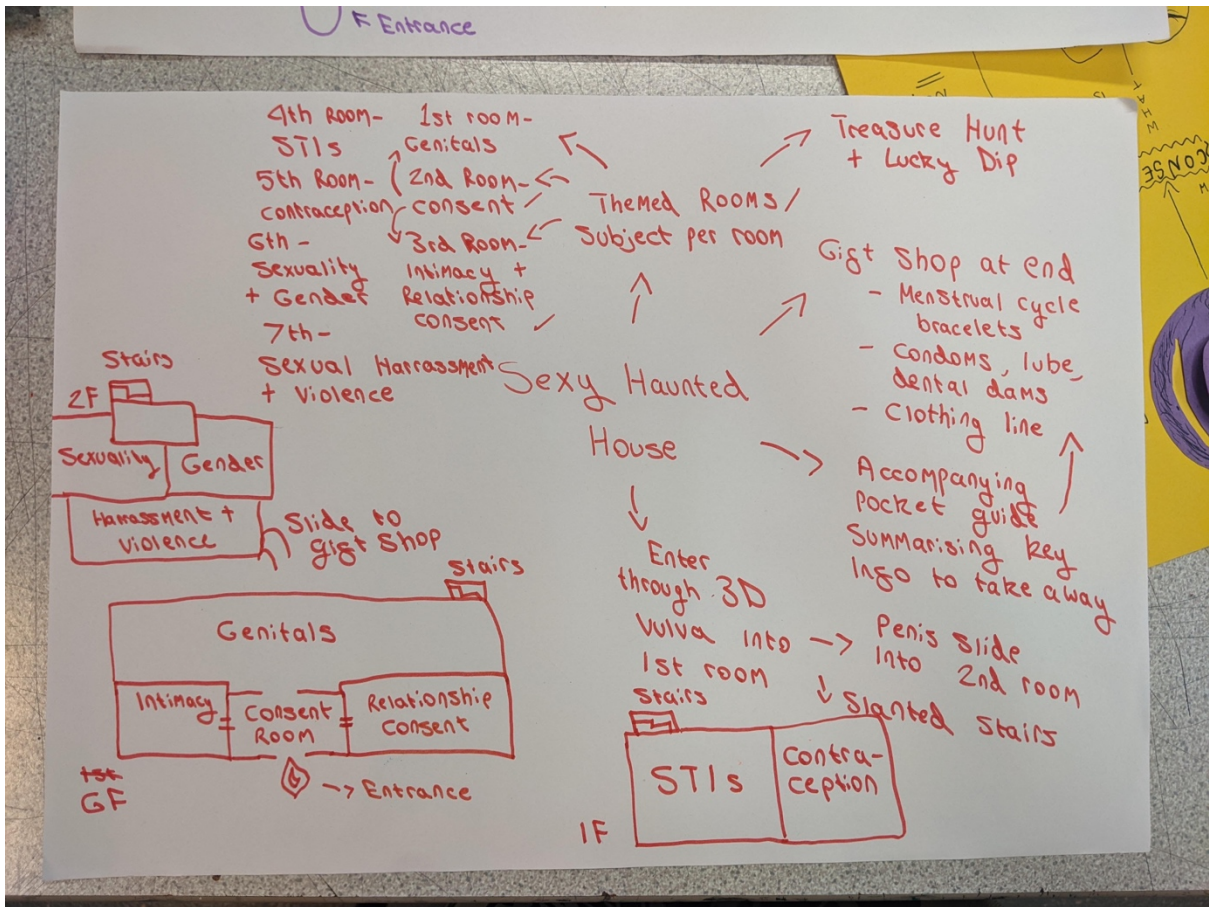 F Entrance
4th Room-
STIs
5th Room-
contraception
6th -
Sexuality
+ Gender
7th -
Sexual Harrassment
+ Violence
1st room-
Genitals
2nd Room-
consent
3rd Room-
Intimacy +
Relationship
consent
Themed Rooms/
Subject per room
Treasure Hunt
+ Lucky Dip
Gift Shop at end
- Menstrual cycle
bracelets
- Condoms, lube,
dental dams
- Clothing line
Sexy Haunted
House
Accompanying
pocket guide
Summarising key
Info to take away
Enter
through 3D
Vulva into
1st room
Penis slide
into 2nd room
Slanted Stairs
Stairs
2F
Sexuality
Gender
Harrassment +
Violence
Slide to
gift shop
Stairs
Genitals
Intimacy
Consent
Room
Relationship
Consent
1st
GF
Entrance
Stairs
STIs
Contra-
ception
1F
WHAT
IS
CONSE